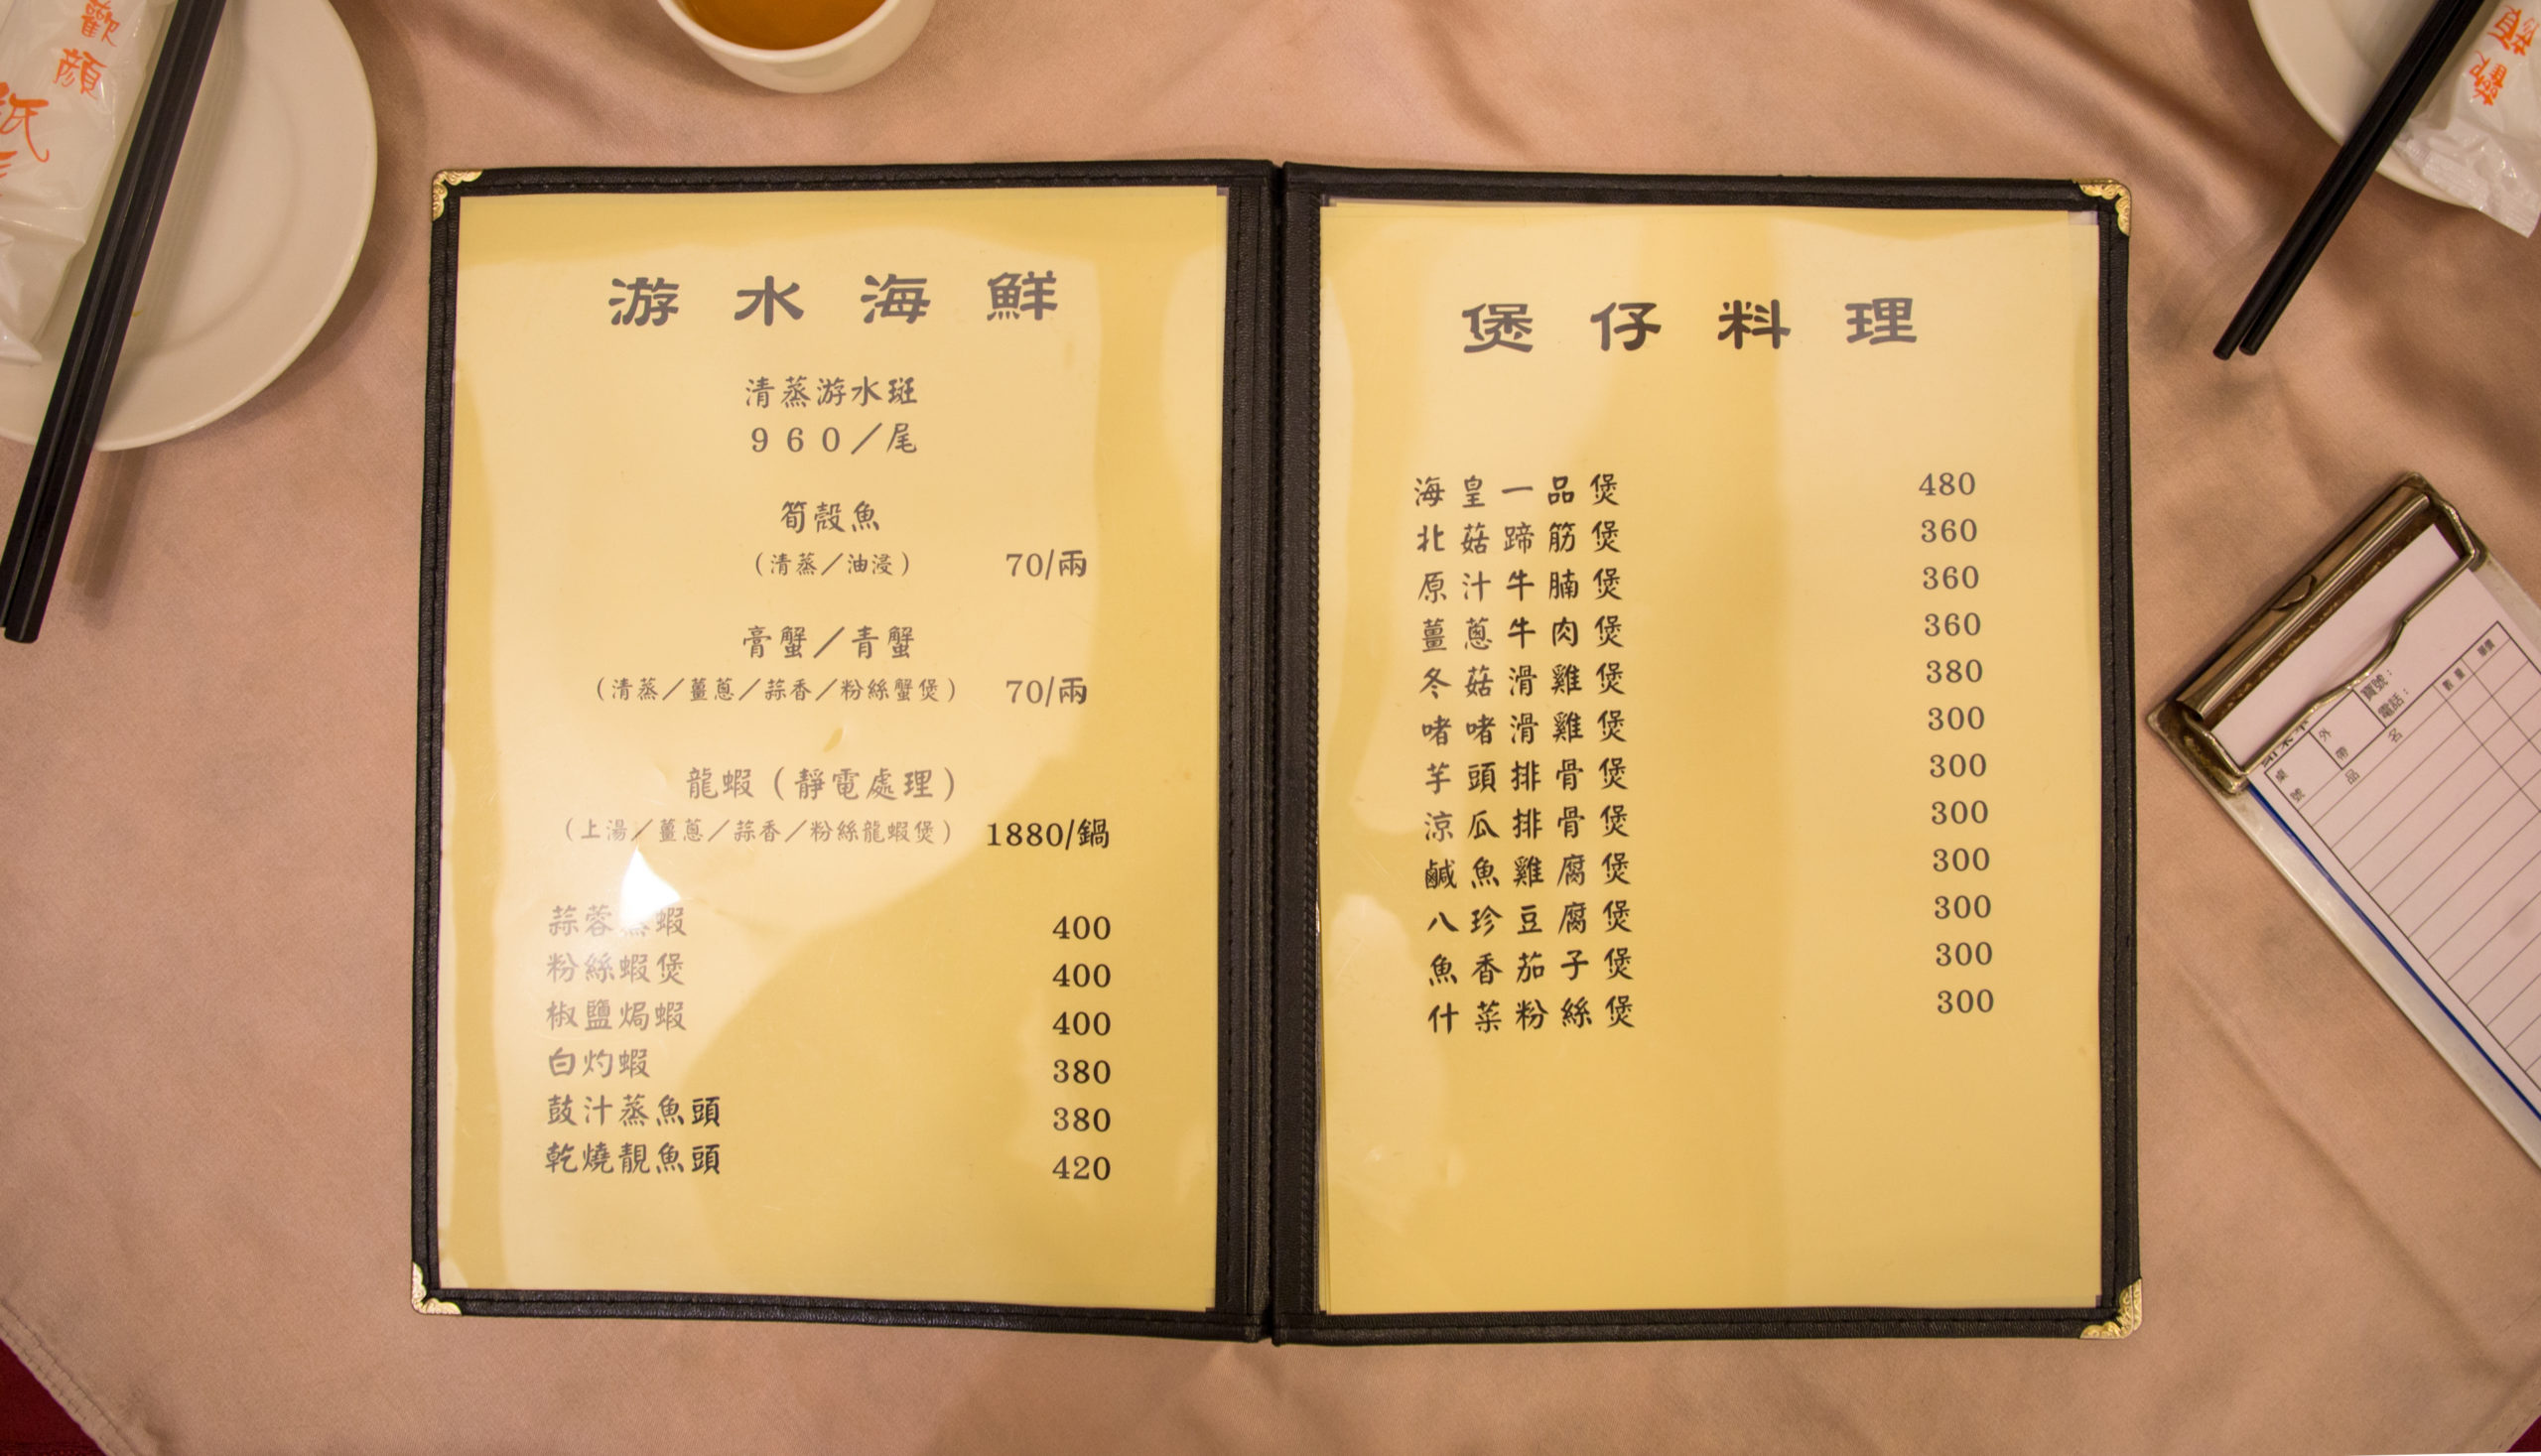 歡
顏
游水海鮮
清蒸游水斑
960／尾
筍殼魚
（清蒸／油浸） 70/兩
膏蟹／青蟹
（清蒸／薑蔥／蒜香／粉絲蟹煲） 70/兩
龍蝦（靜電處理）
（上湯／薑蔥／蒜香／粉絲龍蝦煲） 1880/鍋
蒜蓉 蝦 400
粉絲蝦煲 400
椒鹽焗蝦 400
白灼蝦 380
鼓汁蒸魚頭 380
乾燒靚魚頭 420
煲仔料理
海皇一品煲 480
北菇蹄筋煲 360
原汁牛腩煲 360
薑蔥牛肉煲 360
冬菇滑雞煲 380
啫啫滑雞煲 300
芋頭排骨煲 300
涼瓜排骨煲 300
鹹魚雞腐煲 300
八珍豆腐煲 300
魚香茄子煲 300
什菜粉絲煲 300
寶號：
電話：
外帶
桌號
品名
數量
單價